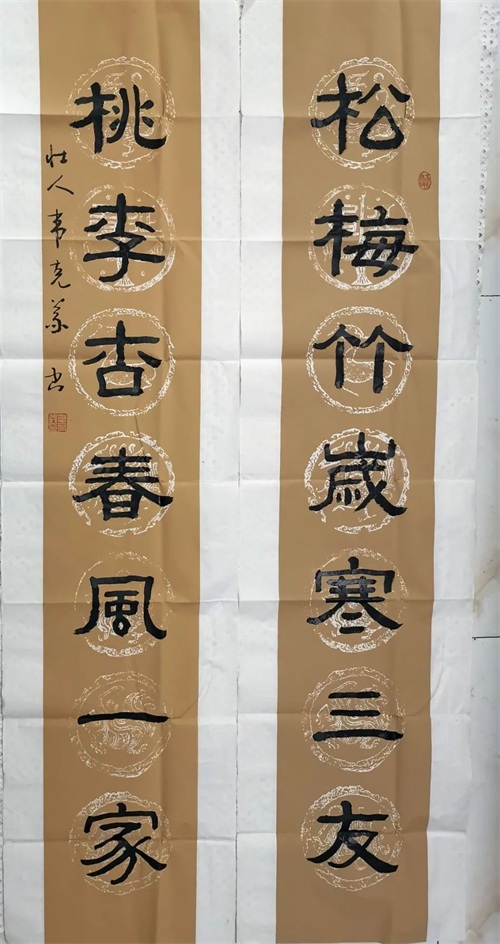 松梅竹歲寒三友
桃李杏春風一家
壯人韦克義书